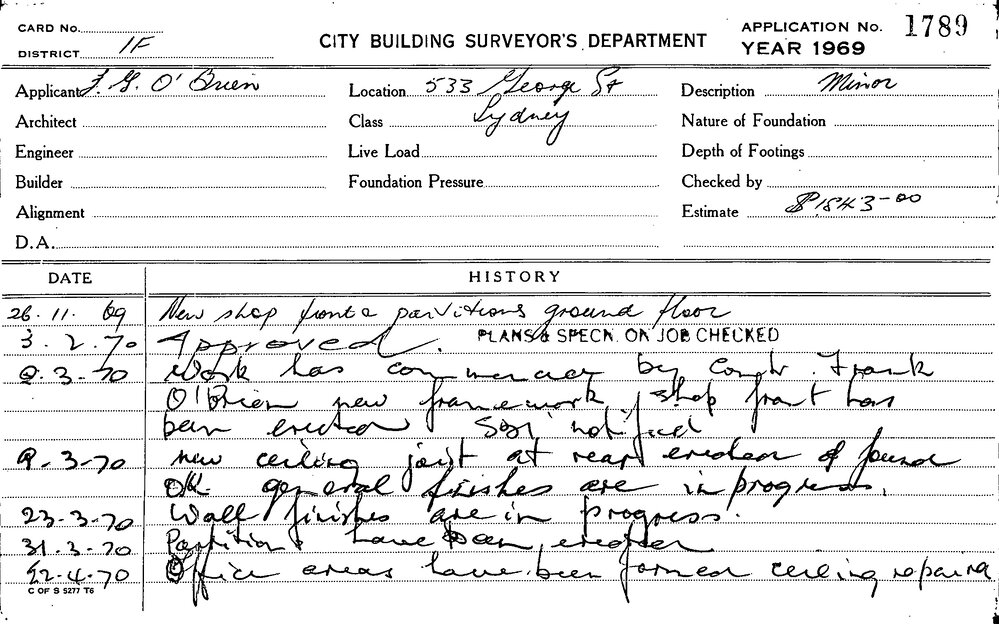 CARD No.
DISTRICT 1F
CITY BUILDING SURVEYOR'S DEPARTMENT
APPLICATION No. 1789
YEAR 1969
Applicant F. G. O'Brien
Location 533 George St
Description Minor
Architect
Class Sydney
Nature of Foundation
Engineer
Live Load
Depth of Footings
Builder
Foundation Pressure
Checked by
Alignment
Estimate $1843-00
D.A.
DATE
HISTORY
26.11.69 New shop front & partitions ground floor
3.2.70 Approved. PLANS & SPECN. ON JOB CHECKED
9-3-70 Work has commenced by Contr. Frank
O'Brien new framework, shop front has
been erected notified
9-3-70 new ceiling joist at rear erected & found
OK. general finishes are in progress.
23-3-70 Wall finishes are in progress.
31-3-70 Partitions have been erected
22-4-70 Office areas have been formed ceiling repaired
C OF S 5277 T6